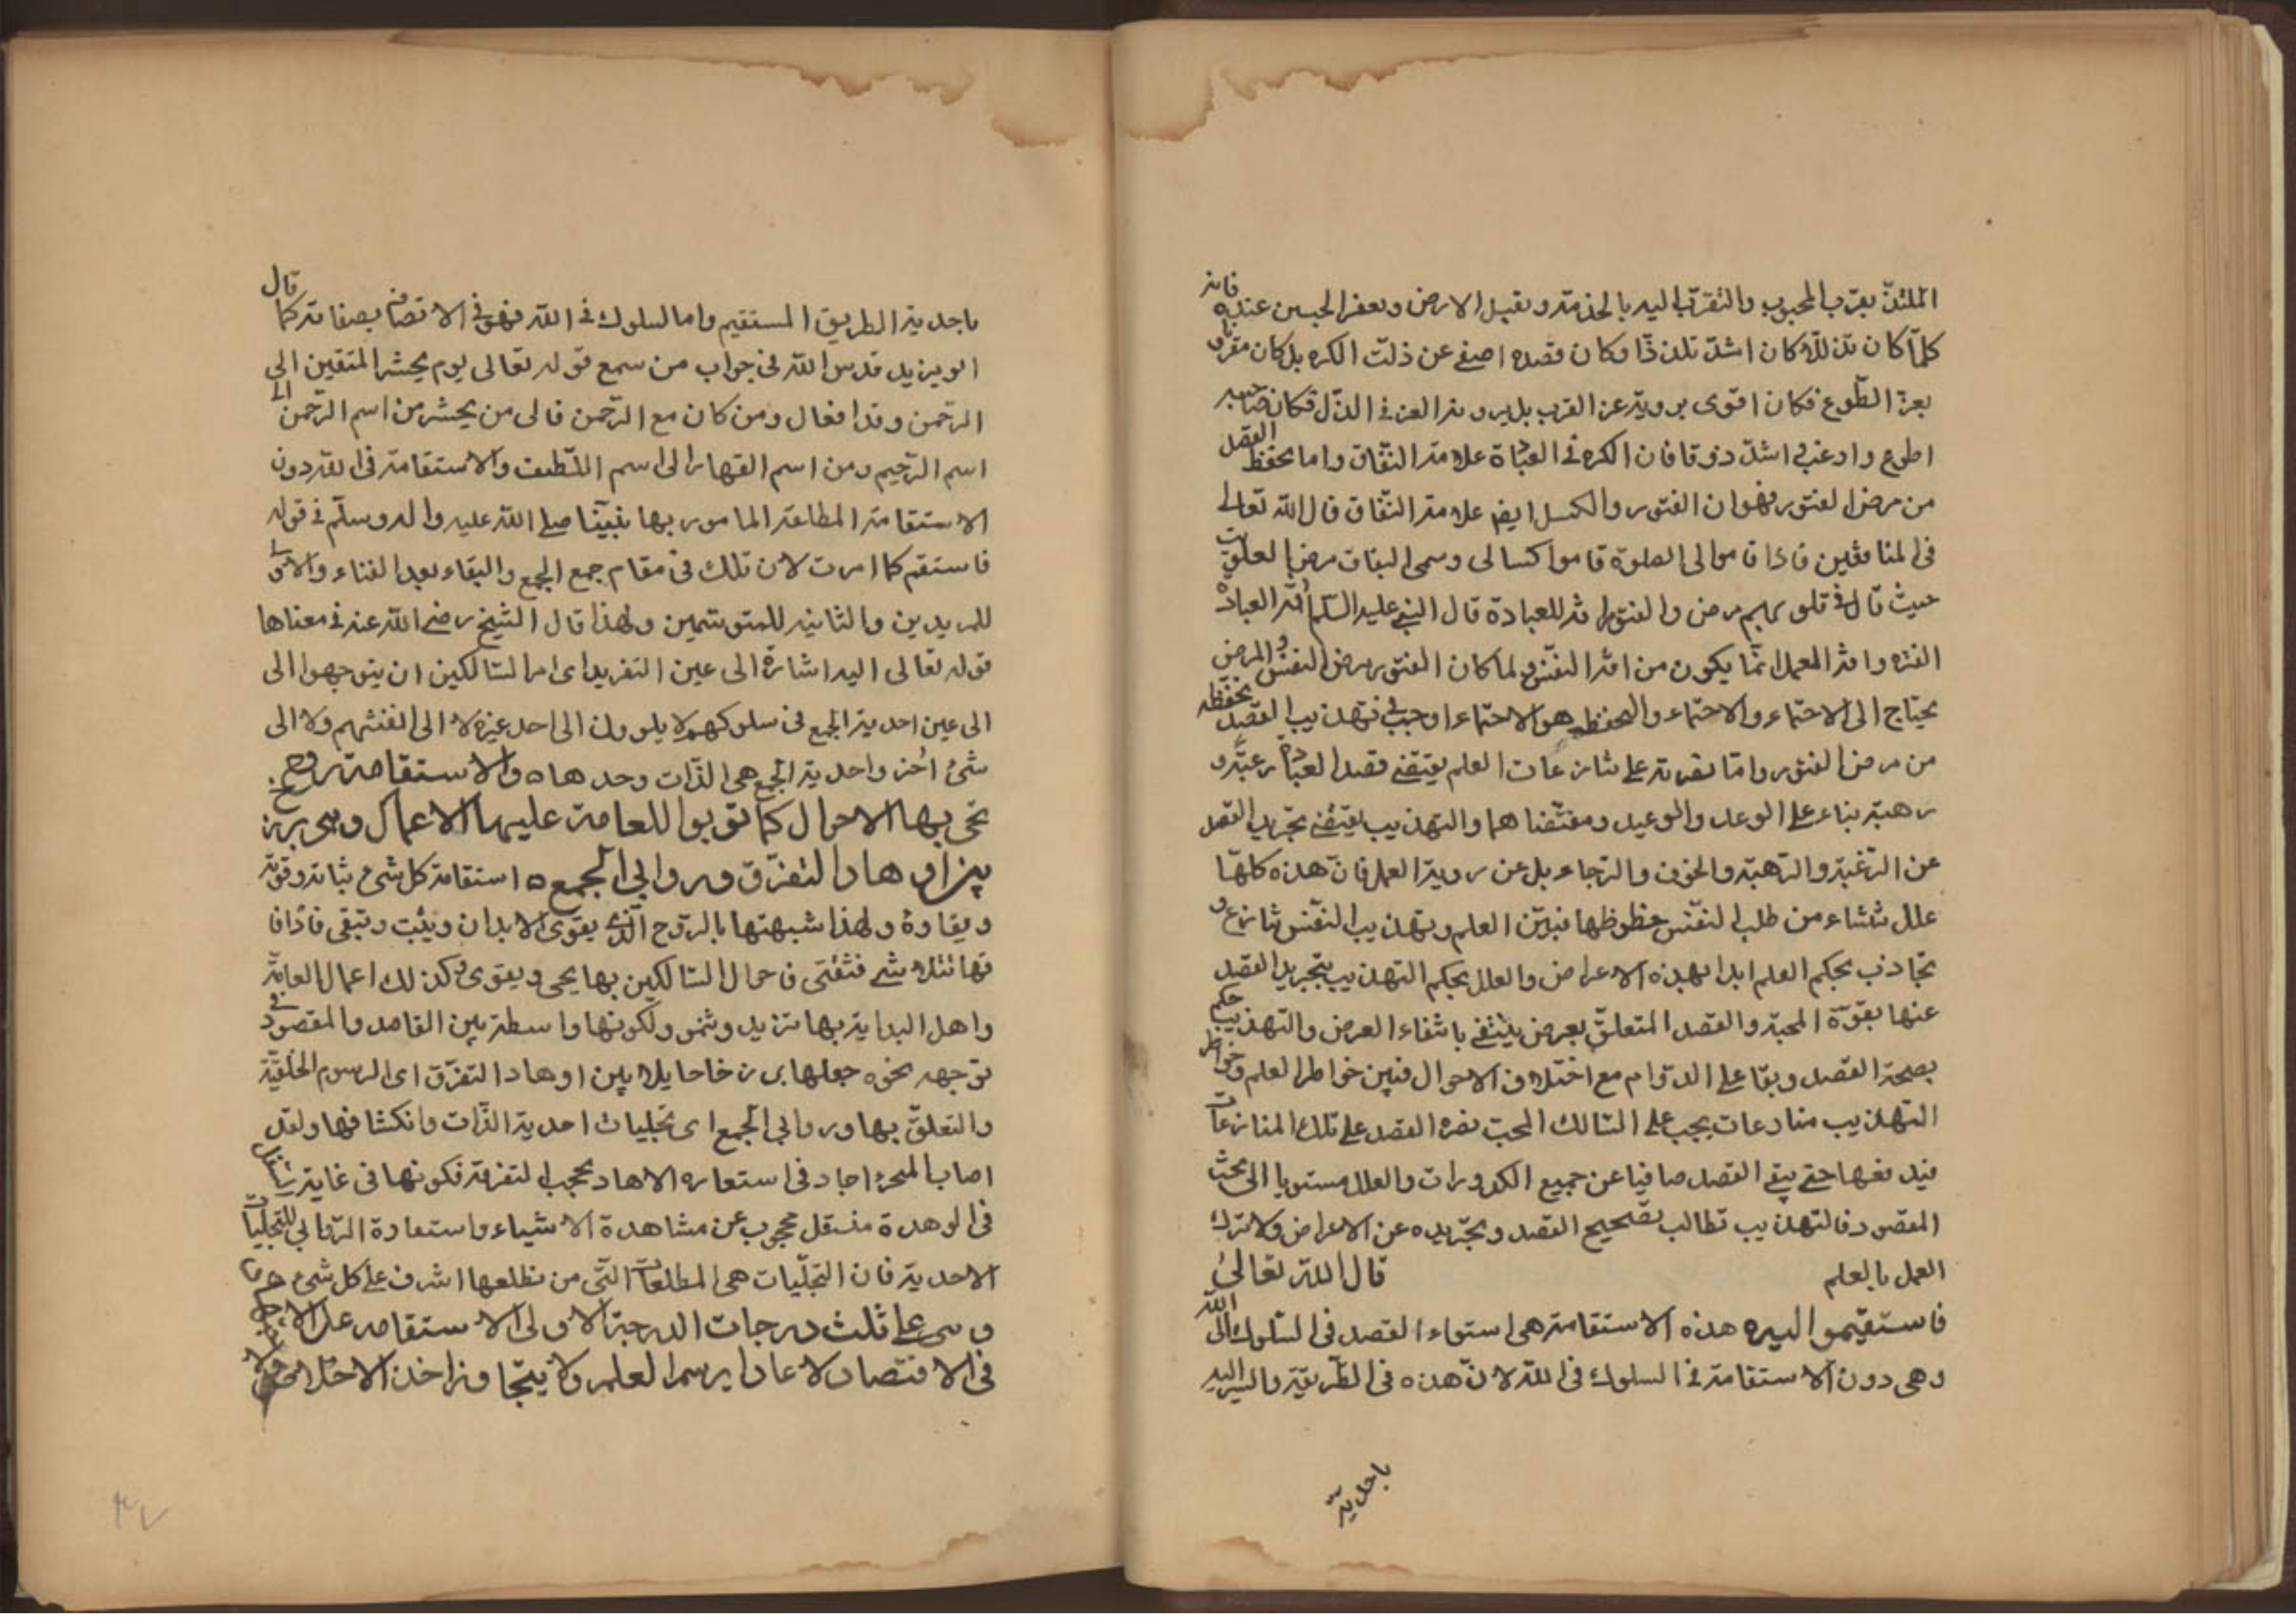 الملتذ بقرب المحبوب والتقرب اليه بالخدمة وتقبيل الارض وتعفير الجبين عنده فانه
كلما كان تذلله كان اشد تلذذا وكان قصده اصفى عن ذلت الكره بل كان مقرونا
بعزة الطوع فكان اقوى برؤية عز القرب بل برؤية العز في الذل فكان صاحبه
اطوع وارغب اشد ذوقا فان الكره في العبادة علامة النفاق واما تحفظ القصد
من مرض الفتور فهو ان الفتور والكسل ايضا علامة النفاق قال الله تعالى
في المنافقين فاذا قاموا الى الصلوة قاموا كسالى وسمى النفاق مرض القلوب
حيث قال في قلوبهم مرض والفتور افة للعبادة قال النبي عليه السلم افة العبادة
الفترة وافة العمل انما يكون من افة النفس ولما كان الفتور مرض النفس والمرض
يحتاج الى الاحتماء والاحتماء والتحفظ هو الاحتماء اوجب في تهذيب القصد تحفظه
من مرض الفتور واما نصرته على منازعات العلم يقتضى قصد العبادة رغبة و
رهبة بناء على الوعد والوعيد ومقتضاهما والتهذيب يقتضى تجريد القصد
عن الرغبة والرهبة والخوف والرجاء بل عن رؤية العمل فان هذه كلها
علل تنشاء من طلب النفس حظوظها فبين العلم وتهذيب النفس تنازع و
تجاذب بحكم العلم ابدا بهذه الاعراض والعلل بحكم التهذيب بتجريد القصد
عنها بقوة المحبة والقصد المتعلق بعرض ينتفى بانتفاء العرض والتهذيب حكم
بصحة القصد وبقا على الدوام مع اختلاف الاحوال فبين خواطر العلم وخواطر
التهذيب منازعات يجب على السالك المحب نصرة القصد على تلك المنازعات
فيدفعها حتى يبقى القصد صافيا عن جميع الكدورات والعلل مستويا الى بحث
المقصود فالتهذيب تطالب بتصحيح القصد وتجريده عن الاعراض ولا ترك
العمل بالعلم قال الله تعالى
فاستقيموا اليه هذه الاستقامة هى استواء القصد فى السلوك الى الله
وهى دون الاستقامة فى السلوك فى الله لان هذه فى الطريقة والسير اليه
باحدية
باحدية الطريق المستقيم واما السلوك فى الله فهو فى الاتصاف بصفاته كما قال
ابو يزيد قدس الله فى جواب من سمع قوله تعالى يوم يحشر المتقين الى
الرحمن وفدا فقال ومن كان مع الرحمن فالى من يحشر من اسم الرحمن الى
اسم الرحيم ومن اسم القهار الى اسم اللطيف والاستقامة فى الله دون
الاستقامة المطلقة المامور بها نبينا صلى الله عليه واله وسلم فى قوله
فاستقم كما امرت لان تلك فى مقام جمع الجمع والبقاء بعد الفناء والاولى
للمريدين والثانية للمتوسمين ولهذا قال الشيخ رضى الله عنه فى معناها
قوله تعالى اليه اشارة الى عين التفريد اى امر السالكين ان يتوجهوا الى
الى عين احدية الجمع فى سلوكهم لا يلوون الى احد غيره لا الى انفسهم ولا الى
شئ اخر واحدية الجمع هى الذات وحدها ه والاستقامة روح
تحى بها الاحوال كما تربوا للعامة عليها الاعمال وهى برزخ
بين اوهاد التفرق وروابى الجمع ه استقامة كل شئ ثباته وقوته
وبقاوه ولهذا شبهتها بالروح الذى يقوى الابدان ويثبت وتبقى فاذا فا
رقها تتلاشى فتفنى فاحوال السالكين بها يحى ويقوى وكذلك اعمال العامة
واهل البداية بها تزيد وتنمو ولكونها واسطة بين القاصد والمقصود فى
توجهه نحوه جعلها برزخا حايلا بين اوهاد التفرق اى الرسوم الخلقية
والتعلق بها وروابى الجمع اى تجليات احدية الذات وانكشافها ولقد
اصاب المحز اجاد فى استعاره الاهاد بحجب التفرقة فكونها فى غاية
فى الوهدة منسفل محجوب عن مشاهدة الاشياء واستعارة الروابى للتجليات
الاحدية فان التجليات هى المطلعات التى من تطلعها اشرف على كل شئ
وهى على ثلث درجات الدرجة الاولى الاستقامه على الاجتهاد
فى الاقتصاد لا عاديا رسم العلم ولا يتجاوز احد الاخلاص